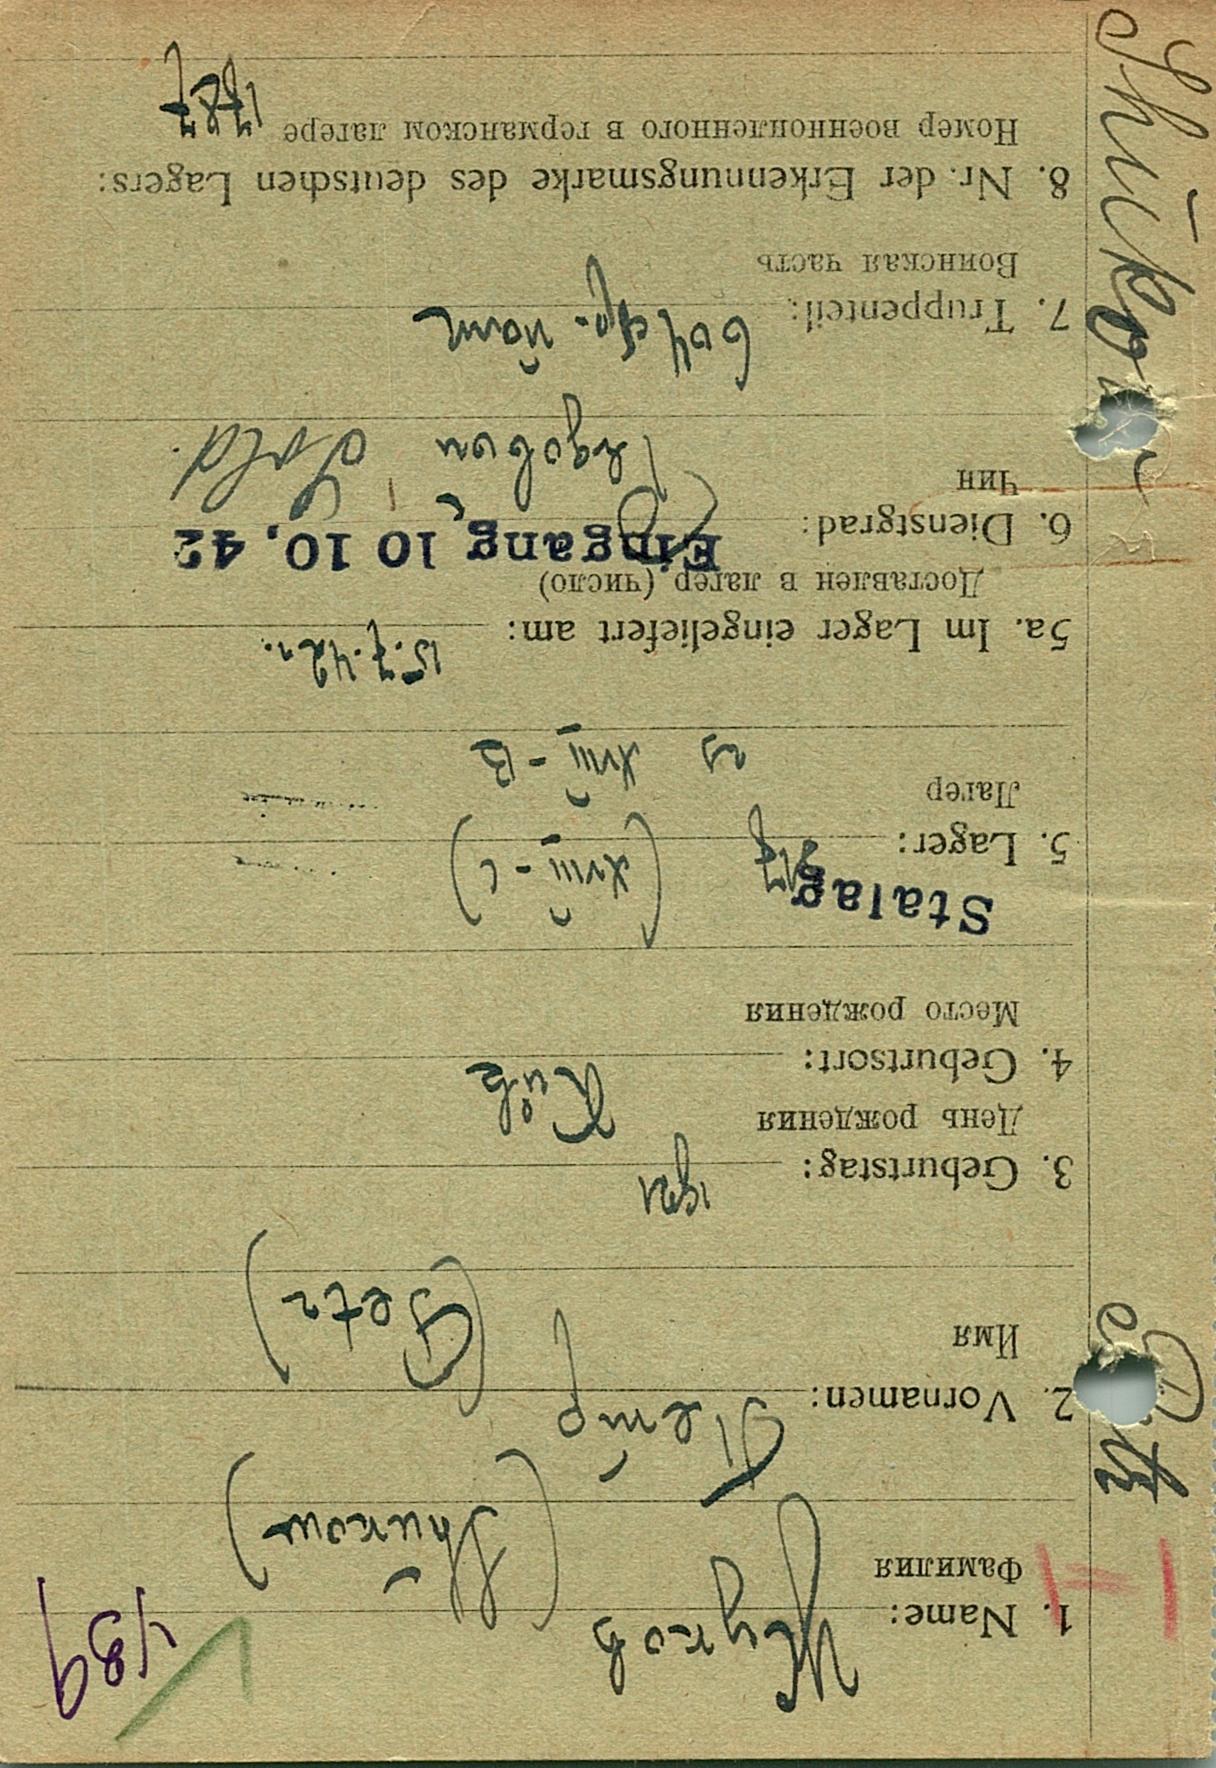 489
1. Name: Жуков (Shukow)
Фамилия
2. Vornamen: Петр (Petr)
Имя
3. Geburtstag: 1921
День рождения
4. Geburtsort:
Место рождения
Stalag 317
5. Lager: (XVIII-C)
Лагер
из XVIII-B
5a. Im Lager eingeliefert am: 15.7.42 г.
Доставлен в лагер (число)
Eingang 10 10. 42
6. Dienstgrad: Рядовой Sold.
Чин
7. Truppenteil: 604 стр. полк
Воинская часть
8. Nr. der Erkennungsmarke des deutschen Lagers:
Номер военнопленного в германском лагере 1787
Petr Shukow